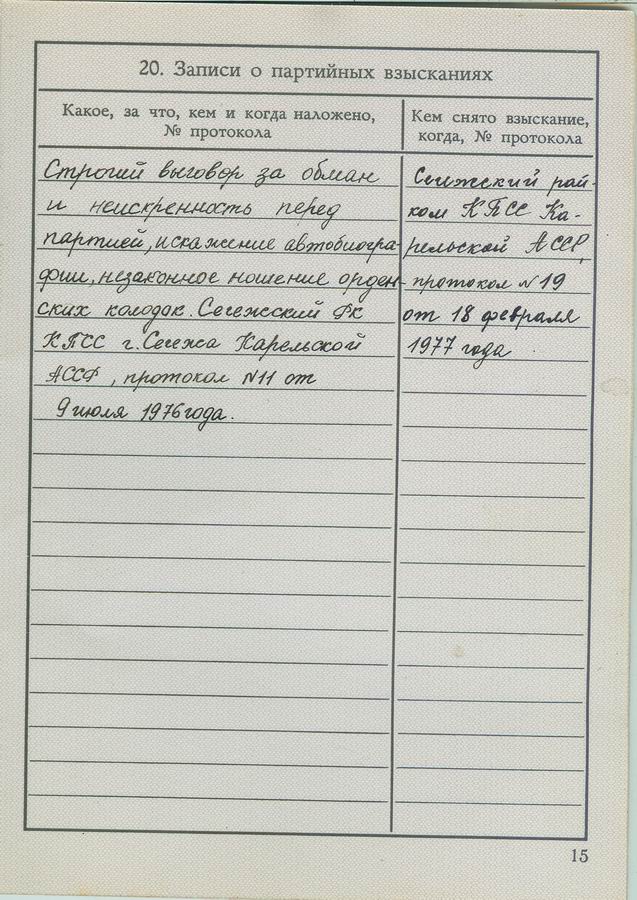 20. Записи о партийных взысканиях
Какое, за что, кем и когда наложено,
№ протокола
Строгий выговор за обман
и неискренность перед
партией, искажение автобиогра-
фии, незаконное ношение орден-
ских колодок. Сегежский РК
КПСС г. Сегежа Карельской
АССР, протокол N11 от
9 июля 1976 года.
Кем снято взыскание,
когда, № протокола
Сегежский рай-
ком КПСС Ка-
рельской АССР,
протокол N19
от 18 февраля
1977 года
15